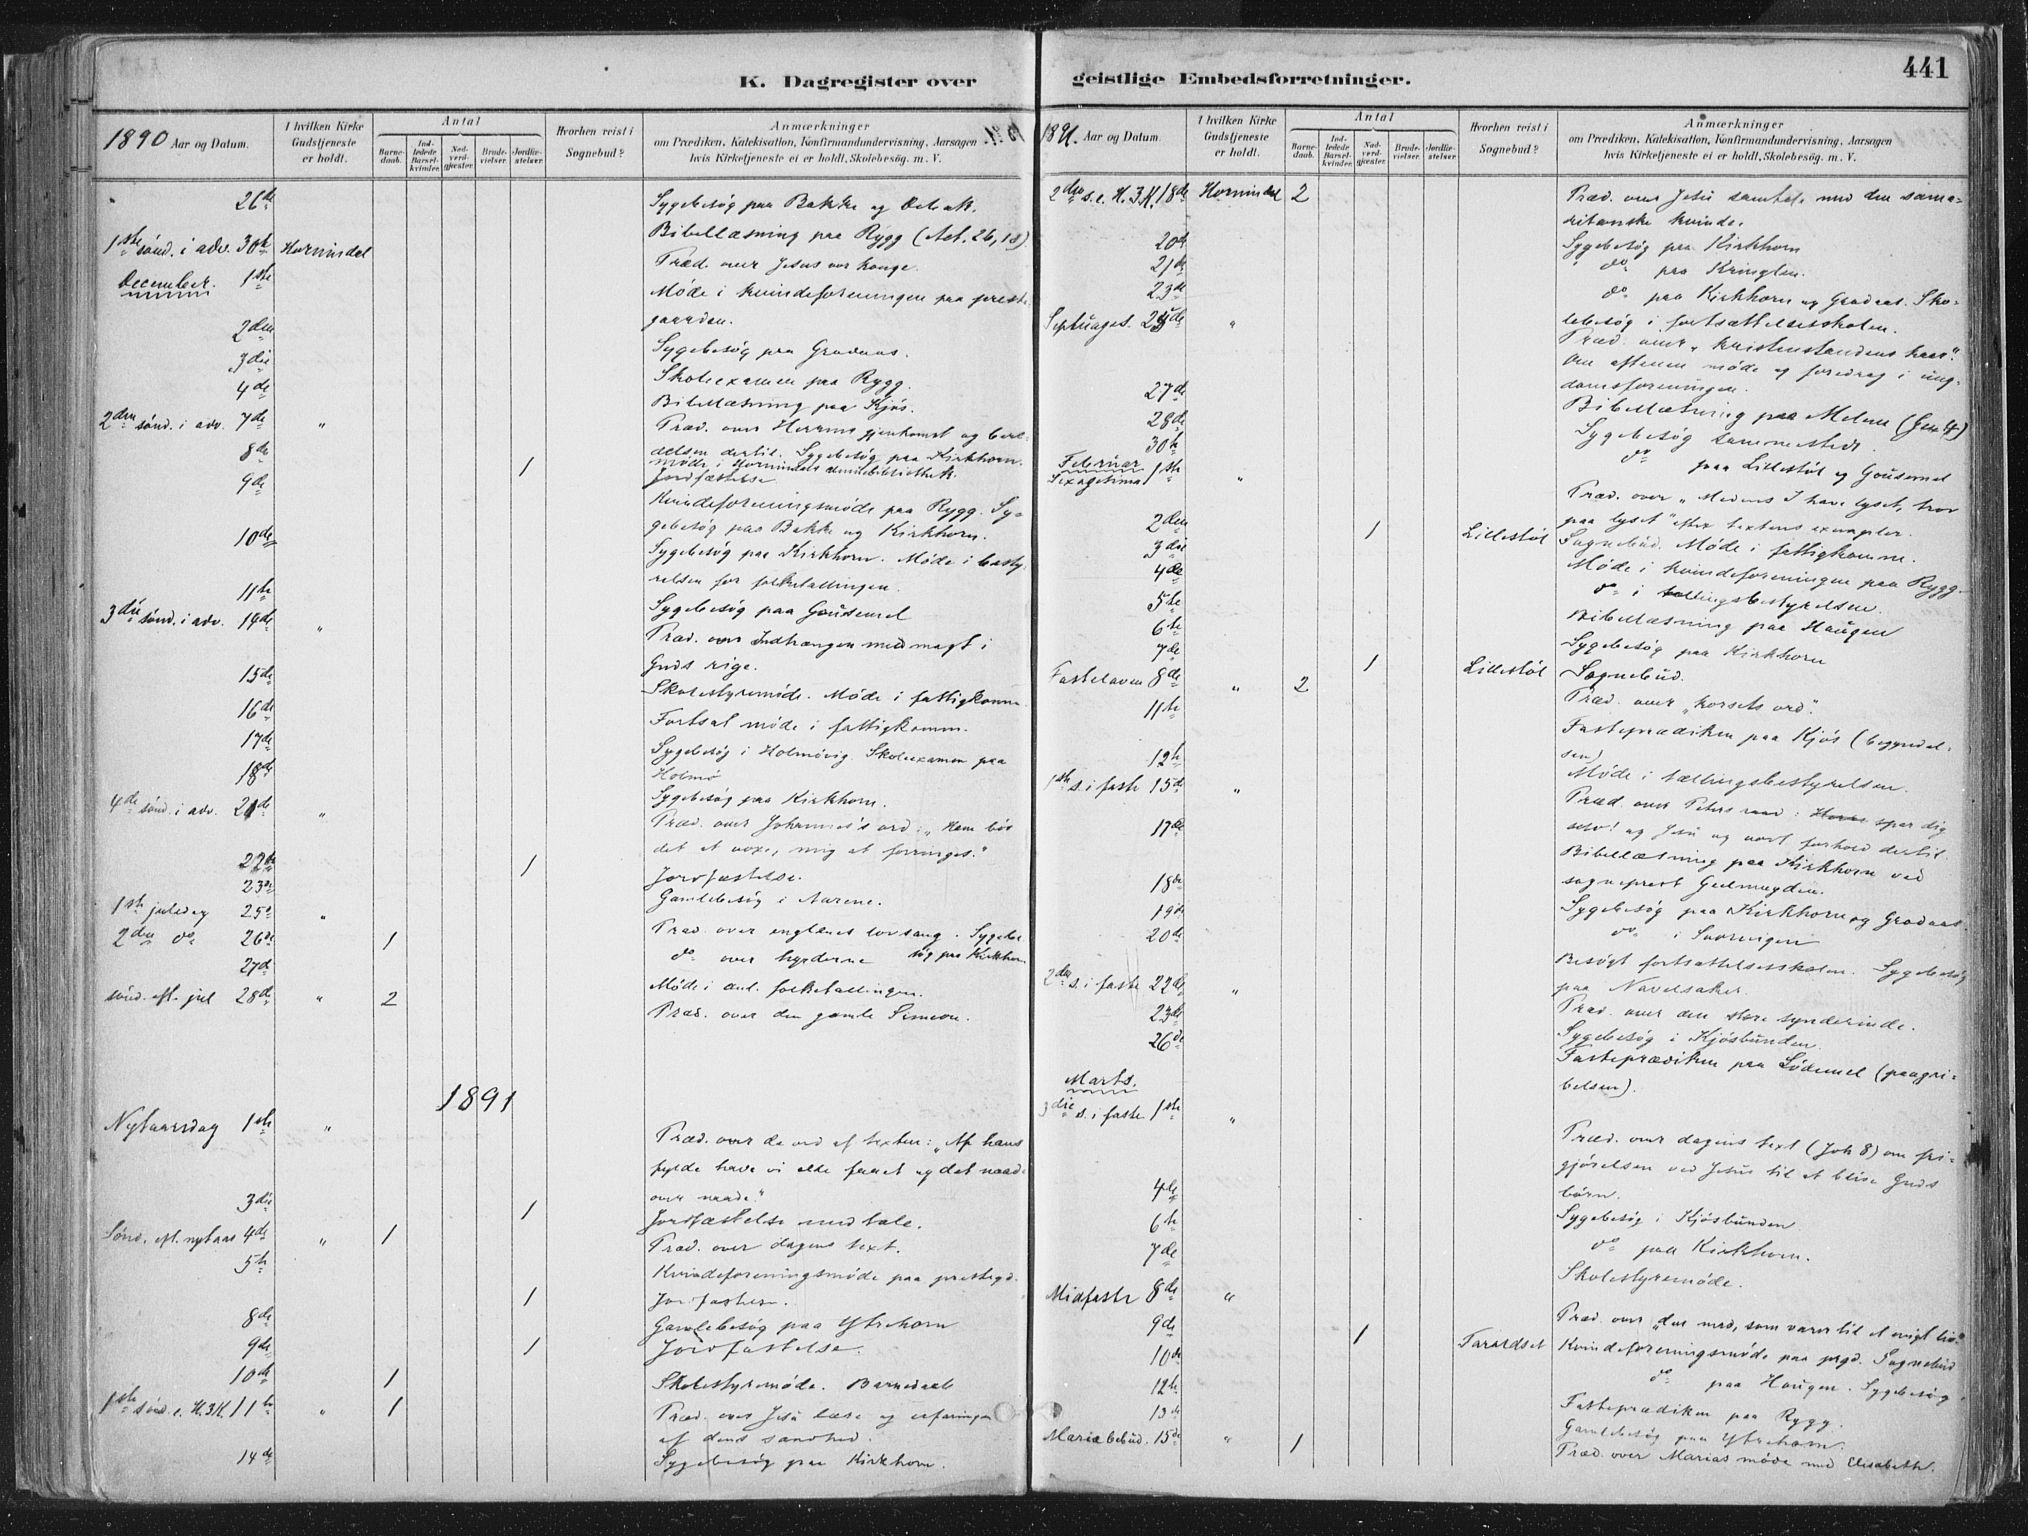 441
K. Dagregister over
geistlige Embedsforretninger.
1890 Aar og Datum.
I hvilken Kirke Gudstjeneste er holdt.
Antal
Barnedaab.
Indledede Barselkvinder.
Nadverdgjester.
Brudevielser.
Jordfæstelser.
Hvorhen reist i Sognebud?
Anmærkninger
om Prædiken, Katekisation, Konfirmandundervisning, Aarsagen
hvis Kirketjeneste ei er holdt, Skolebesøg. m. V.
26de Sygebesøg paa Bakke og
Bibellæsning paa Rygg (Act. 26,18)
1ste sønd. i adv. 30te Hornindal
Præd. over Jesus vor konge.
December. 1ste Møde i kvindeforeningen paa prest-
gaarden.
2den Sygebesøg paa Gradaas.
3die Skoleexamen paa Rygg.
4de Bibellæsning paa Kjøs.
2den sønd. i adv. 7de " Præd. over Herrens gjenkomst og bere-
delsen dertil. Sygebesøg paa Kirkhorn.
møde i Hornindals
8de 1 Jordfæstelse
9de Kvindeforeningsmøde paa Rygg. Sy-
gebesøg paa Bakke og Kirkhorn.
10de Sygebesøg paa Kirkhorn. Møde i besty-
relsen for folketællingen.
11te Sygebesøg paa Gausemel
3die sønd. i adv. 14de " Præd. over Indtrængen med magt i
Guds rige.
15de Skolestyremøde. Møde i fattigkomm.
16de Fortsat møde i fattigkomm.
17de Sygebesøg i Holmøvig. Skoleexamen paa
Holmø
18de Sygebesøg paa Kirkhorn.
4de sønd. i adv. 21de " Præd. over Johannes's ord: "Ham bør
det at voxe, mig at forringes."
22de 1 Jordfæstelse.
23de Gamlebesøg i Navene.
1ste juledag 25de " Præd. over englenes lovsang. Sygebe-
søg paa Kirkhorn
2den do 26de 1 do over hyrderne
27de Møde i anl. folketællingen.
sønd. eft. jul 28de " 2 Præd. over den gamle Simeon.
1891
Nytaarsdag 1ste " Præd. over de ord af texten: "Af hans
fylde have vi alle faaet og det naade
over naade."
3die 1 Jordfæstelse med tale.
Sønd. eft. nytaar 4de " 1 Præd. over dagens text.
5te Kvindeforeningsmøde paa prestegd.
1 Jordfæstelse.
8de Gamlebesøg paa Ytrehorn
9de 1 Jordfæstelse.
10de 1 Skolestyremøde. Barnedaab
1ste sønd. e. H.3K. 11te " 1 Præd. over Jesu lære og erfaringen
af dens sandhed.
14de Sygebesøg paa Kirkhorn.
1891. Aar og Datum.
I hvilken Kirke Gudstjeneste er holdt.
Antal
Barnedaab.
Indledede Barselkvinder.
Nadverdgjester.
Brudevielser.
Jordfæstelser.
Hvorhen reist i Sognebud?
Anmærkninger
om Prædiken, Katekisation, Konfirmandundervisning, Aarsagen
hvis Kirketjeneste ei er holdt, Skolebesøg. m. V.
2den s. e. H.3K. 18de Hornindal 2 Præd. over Jesu samtale med den sama-
ritanske kvinde.
20de Sygebesøg paa Kirkhorn
21de do paa Kringlen.
23de do paa Kirkhorn og Gradaas. Sko-
lebesøg i fortsættelsesskolen.
Septuages. 25de " Præd. over "kristenstandens haab".
Om aftenen møde og foredrag i ung-
domsforeningen.
27de Bibellæsning paa Melem
28de Sygebesøg sammesteds.
30te do paa Lillestøl og Gausemel
Februar
Sexagesima 1ste " Præd. over "Medens I have lyset, tror
paa lyset" efter textens exempler.
2den 1 Lillestøl Sognebud. Møde i fattigkomm.
3die Møde i kvindeforeningen paa Rygg.
4de do i tællingsbestyrelsen.
5te Bibellæsning paa Haugen
6te Sygebesøg paa Kirkhorn
7de 1 Lillestøl Sognebud.
Fastelaven 8de " 2 Præd. over "korsets ord".
11te Fasteprædiken paa Kjøs (begyndel-
sen)
12te Møde i tællingsbestyrelsen.
1ste s. i faste 15de " Præd. over Peters raad: spar dig
selv! og Jesu og vort forhold dertil.
17de Bibellæsning paa Kirkhorn ved
sogneprest Geelmuyden.
18de Sygebesøg paa Kirkhorn og Gradaas.
19de do i
20de Besøgt fortsættelsesskolen. Sygebesøg
paa Navelsaker.
2den s. i faste 22de " Præd. over den store synderinde.
23de Sygebesøg i Kjøsbunden.
26de Fasteprædiken paa Lødemel (paagri-
belsen).
Marts.
3die s. i faste 1ste " Præd. over dagens text (Joh 8) om fri-
gjørelsen ved Jesus til at blive Guds
børn.
4de Sygebesøg i Kjøsbunden.
6te do paa Kirkhorn.
7de Skolestyremøde.
Midfaste 8de " Præd. over "den mad, som varer til et evigt liv".
9de 1 Taraldset Kvindeforeningsmøde paa prgd. Sognebud
10de do paa Haugen. Sygebesøg.
12te Fasteprædiken paa Rygg.
13de Gamlebesøg paa Ytrehorn.
Mariæ bebud. 15de " 1 Præd. over Marias møde med Elisabeth.